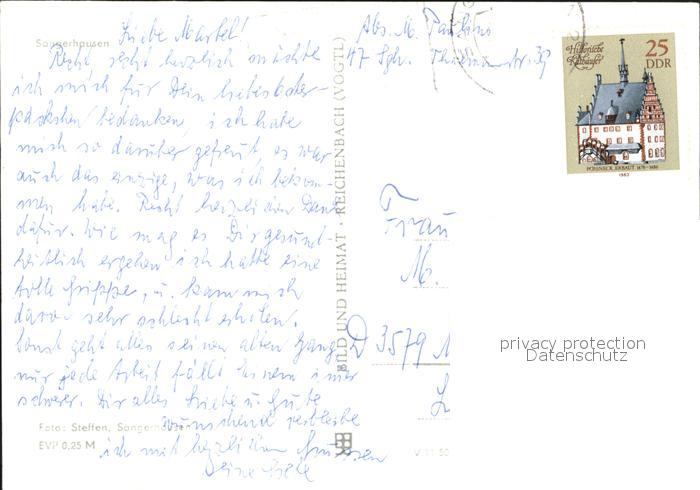 Sangerhausen
Liebe Martel!
Recht, recht herzlich möchte
ich mich für Dein liebes Oster-
päckchen bedanken, ich habe
mich so darüber gefreut, es war
auch das einzige, was ich bekom-
men habe. Recht herzlichen Dank
dafür. Wie mag es Dir gesund-
heitlich ergehen ich hatte eine
tolle Grippe, u. kann mich
davon sehr schlecht erholen.
Sonst geht alles seinen alten Gang
nur jede Arbeit fällt einem immer
schwerer. Dir alles Liebe u. Gute
wünschend verbleibe
ich mit herzlichen Grüssen
Deine
Foto: Steffen, Sangerhausen
EVP 0,25 M
BILD UND HEIMAT · REICHENBACH (VOGTL)
V 11 50
Abs. M.
47 Sgh.
Historische
Rathäuser
25
DDR
PÖSSNECK, ERBAUT 1478-1486
1983
Frau
M.
D 3579
privacy protection
Datenschutz